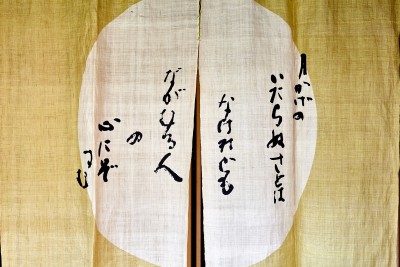 月かげの
いたらぬさとは
なけれども
ながむる人
の
心にぞ
すむ